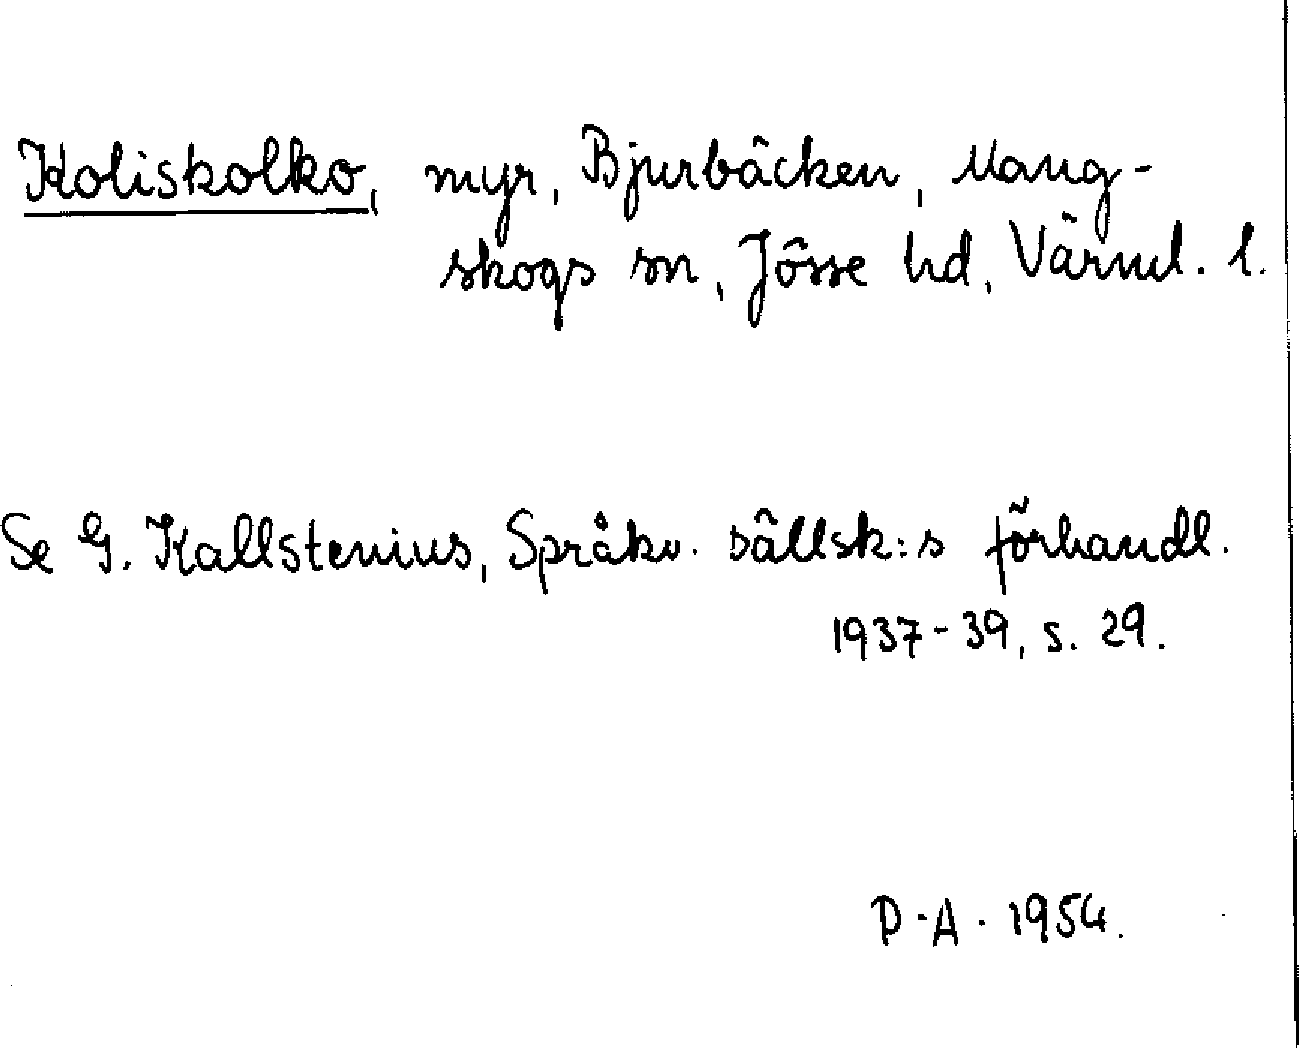 Koliskolko, myr, Bjurbäcken, Mang-
skogs sn, Jösse hd, Värml. l.
Se G. Kallstenius, Språkv. sällsk:s förhandl.
1937-39, s. 29.
P.A. 1954.